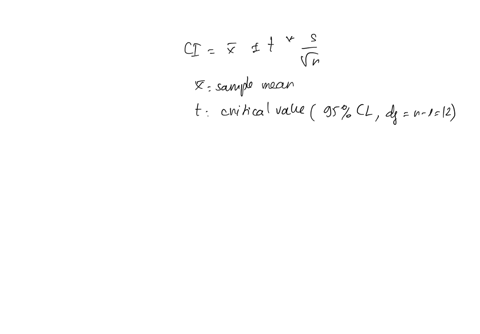 CI = x̄ ± t * s/√n
x̄: sample mean
t: critical value ( 95% CL, df = n-1=12)